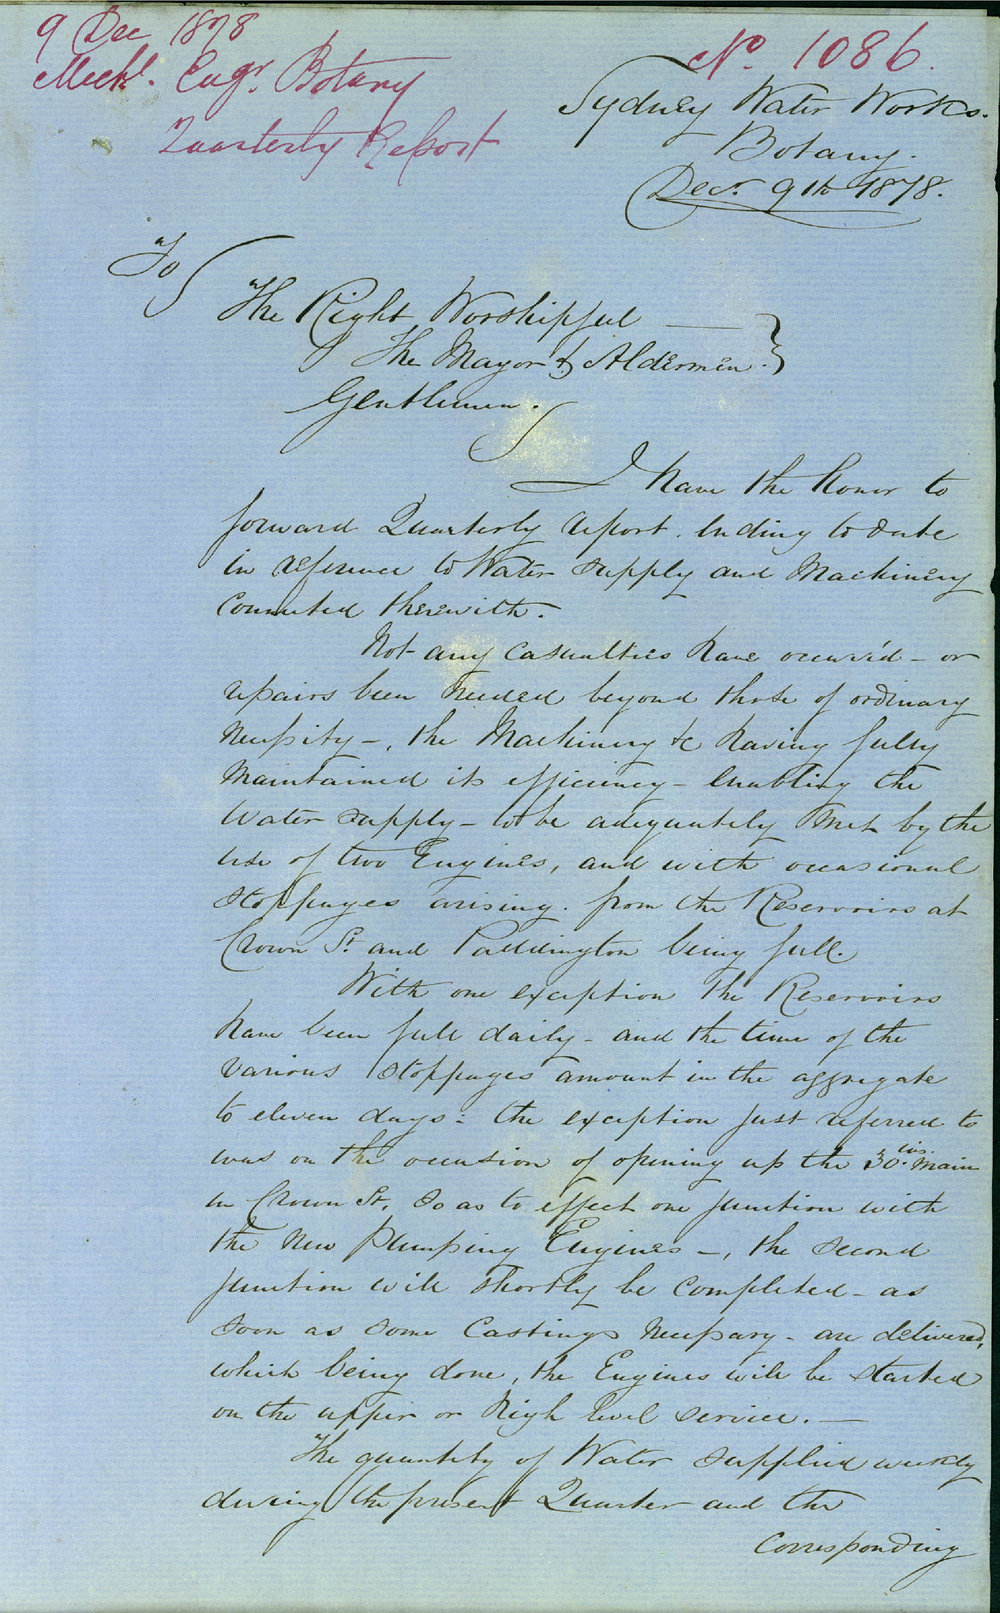 9 Dec 1878
Mechl. Engr. Botany
Quarterly Report
No. 1086.
Sydney Water Works.
Botany.
Decr. 9th 1878.
To
The Right Worshipful
The Mayor & Aldermen.
Gentlemen.
I have the honor to
forward Quarterly report. Ending to date
in reference to Water supply and Machinery
connected therewith.
Not any casualties have occurr'd - or
repairs been needed beyond those of ordinary
necessity -, the Machinery &c having fully
maintained its efficiency - Enabling the
Water supply - to be adequately met by the
use of two Engines, and with occasional
stoppages arising. from the Reservoirs at
Crown St. and Paddington being full.
With one exception the Reservoirs
have been full daily - and the time of the
various stoppages amount in the aggregate
to eleven days: the exception just referred to
was on the occasion of opening up the 30 ins. main
in Crown St. So as to effect one junction with
the New Pumping Engines -, the second
junction will shortly be completed - as
soon as some Castings necessary - are delivered,
which being done, the Engines will be started
on the upper or high level service. -
The quantity of Water supplied weekly
during the present Quarter and the
Corresponding